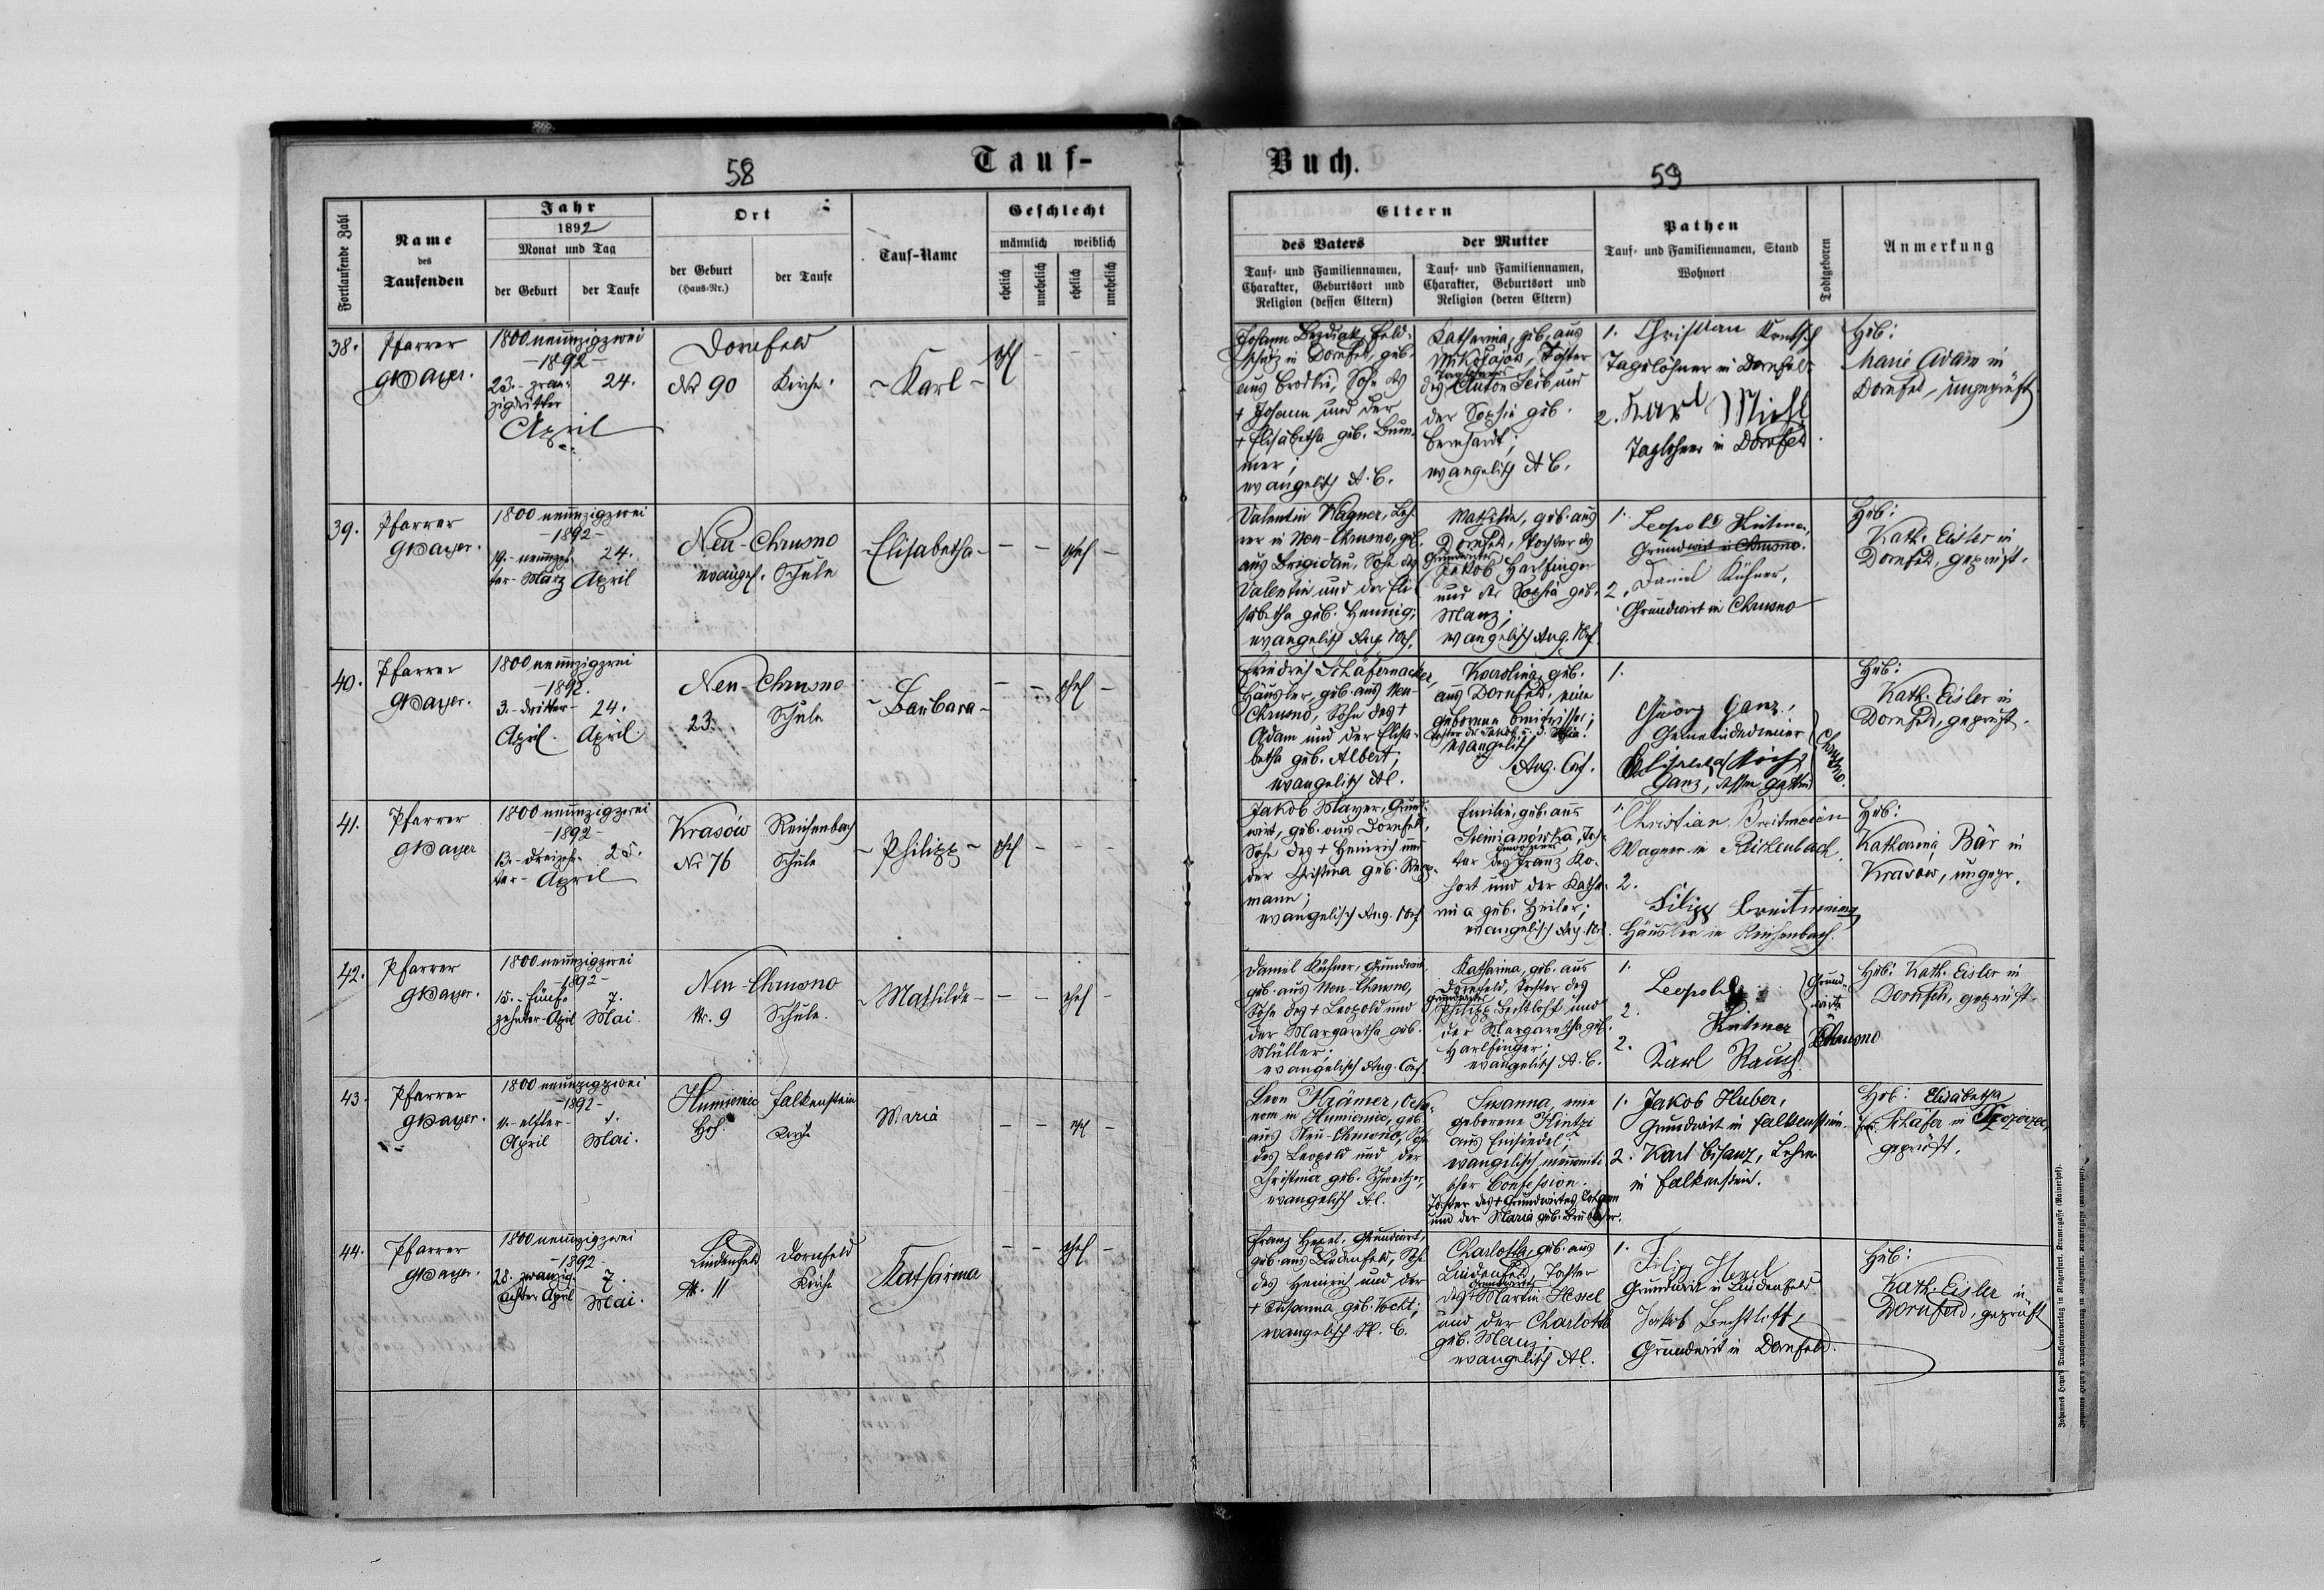 58
Tauf-
Fortlaufende Zahl
Name
des
Taufenden
Jahr
1892
Monat und Tag
der Geburt
der Taufe
Ort
der Geburt
(Haus-Nr.)
der Taufe
Tauf-Name
Geschlecht
männlich
weiblich
ehelich
unehelich
ehelich
unehelich
Buch.
59
Eltern
des Vaters
der Mutter
Tauf- und Familiennamen,
Charakter, Geburtsort und
Religion (dessen Eltern)
Tauf- und Familiennamen,
Charakter, Geburtsort und
Religion (deren Eltern)
Pathen
Tauf- und Familiennamen, Stand
Wohnort
Todtgeboren
Anmerkung
38.
Pfarrer
1800 neunzigzwei
-1892-
23.- zwan-
zigdritter
24.
April
Dornfeld
Nr 90
Kirche.
- Karl -
ehel
- - -
Johann Feld-
schütz in Dornfeld, geb.
aus Sohn des
+ Johann und der
+ Elisabetha geb. Bum-
mer;
evangelisch A. C.
Katharina, geb. aus
Mikołajów, Tochter
Taglöhners
des Anton und
der Sophia geb.
Bernhardt;
evangelisch A C.
1. Christian
Taglöhner in Dornfeld
2. Karl
Taglöhner in Dornfeld.
Heb:
Marie Adam in
Dornfeld, ungeprüft
39.
Pfarrer
1800 neunzigzwei
-1892-
19.- neunzehn-
ter- März
24.
April
Neu-Chrusno
evangel. Schule
- Elisabetha -
- - ehel -
Valentin Wagner, Leh-
rer in Neu-Chrusno, geb.
aus Brigidau, Sohn des
Valentin und der Eli-
sabetha geb. Hennig;
evangelisch Aug. Conf.
Mathilde, geb. aus
Dornfeld, Tochter des
Grundwirtes
Jakob Harlfinger
und der Sophia geb.
Manz;
evangelisch Aug. Conf.
1. Leopold
Grundwirt in Chrusno.
2. Daniel Kühner,
Grundwirt in Chrusno
Heb:
Kath. Eisler in
Dornfeld, geprüft.
40.
Pfarrer
1800 neunzigzwei
-1892.
3.- dritter -
24.
April.
April.
Neu-Chrusno
23.
Schule
- Barbara -
- - ehel -
Friedrich Schäfernacker
Häusler, geb. aus Neu-
Chrusno, Sohn des +
Adam und der Elisa-
betha geb. Albert,
evangelisch A C.
Karolina, geb.
aus Dornfeld, eine
geborene
Tochter des Jakob u. d.
evangelisch
Aug. Conf.
1.
Georg Ganz,
Gemeindediener
Ganz, dessen Gattin
Chrusno.
Heb:
Kath. Eisler in
Dornfeld, geprüft.
41.
Pfarrer
1800 neunzigzwei
-1892-
13.- dreizehn-
ter-
25.
April
Krasów
Nr 76
Reichenbach
Schule
- Philipp -
ehel
- - -
Jakob Mayer, Grund-
wirt, geb. aus Dornfeld,
Sohn des + Heinrich und
der Christina geb. Rupp-
mann;
evangelisch Aug. Conf
Emilie, geb. aus
Siemianówka, Toch-
ter des Franz Ko-
hort und der Katha-
rina geb. Heiler;
evangelisch Aug. Conf.
1. Christian
Wagner in Reichenbach.
2.
Filipp Breitmeier
Häusler in Reichenbach.
Heb:
Katharina Bär in
Krasow, ungepr.
42.
Pfarrer
1800 neunzigzwei
-1892-
15.- fünf-
zehnter- April
7.
Mai.
Neu-Chrusno
Nr. 9
Schule.
- Mathilde -
- - ehel -
Daniel Kühner, Grundwirt
geb. aus Neu-Chrusno,
Sohn des + Leopold und
der Margaretha geb.
Müller;
evangelisch Aug. Conf
Katharina, geb. aus
Dornfeld, Tochter des
Grundwirtes
Philipp Bechtloff und
der Margaretha geb.
Harlfinger;
evangelisch A. C.
1.
Leopold
2.
2.
Karl Rauch
Grund-
wirte
in
Chrusno
Heb: Kath. Eisler in
Dornfeld, geprüft.
43.
Pfarrer
1800 neunzigzwei
-1892-
11.- elfter-
April
Mai.
Humieniec
Hof.
Falkenstein
Kirche
Maria
- - ehel -
Leon Krämer, Oeko-
nom in Humieniec, geb.
aus Neu-Chrusno, Sohn
des Leopold und der
Christina geb. Schweitzer,
evangelisch A C.
Susanna, eine
geborene
aus Einsiedel;
evangelisch, mennoniti-
scher Confession.
Tochter des + Grundwirtes
und der Maria geb. Brubacher.
1. Jakob Huber,
Grundwirt in Falkenstein.
2. Karl Bisanz, Lehrer
in Falkenstein.
Heb: Elisabetha
Schäfer in
geprüft.
44.
Pfarrer
1800 neunzigzwei
-1892-
28. zwanzig-
achter April
7.
Mai.
Lindenfeld
Nr. 11
Dornfeld
Kirche
Katharina
- - ehel -
Franz Hexel, Grundwirt,
geb. aus Lindenfeld, Sohn
des Heinrich und der
+ Susanna geb. Vocht;
evangelisch A. C.
Charlotta, geb. aus
Lindenfeld, Tochter
Grundwirts
des + Martin Hexel
und der Charlotta
geb. Manz;
evangelisch A C.
1.
Filipp Hexel
Grundwirt in Lindenfeld
Jakob Bechtloff,
Grundwirt in Dornfeld.
Heb:
Kath. Eisler in
Dornfeld, geprüft
Johannes Heyn's Drucksortenverlag in Klagenfurt, Kramergasse (Mainerhof).